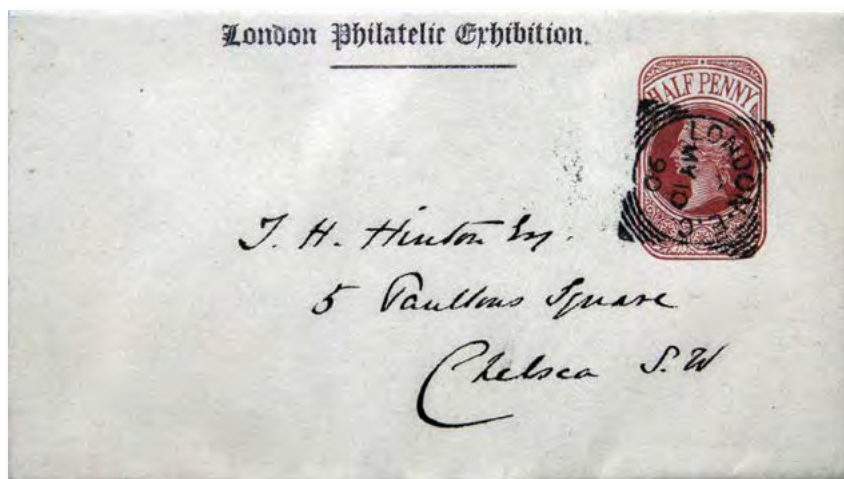 London Philatelic Exhibition.
HALF PENNY
LONDON. E.C
MY 10
90
T. H. Hinton Esq.
5 Paultons Square
Chelsea S.W